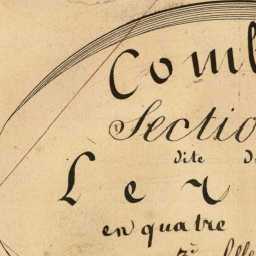 Com
Sectio
dite d
L e
en quatre